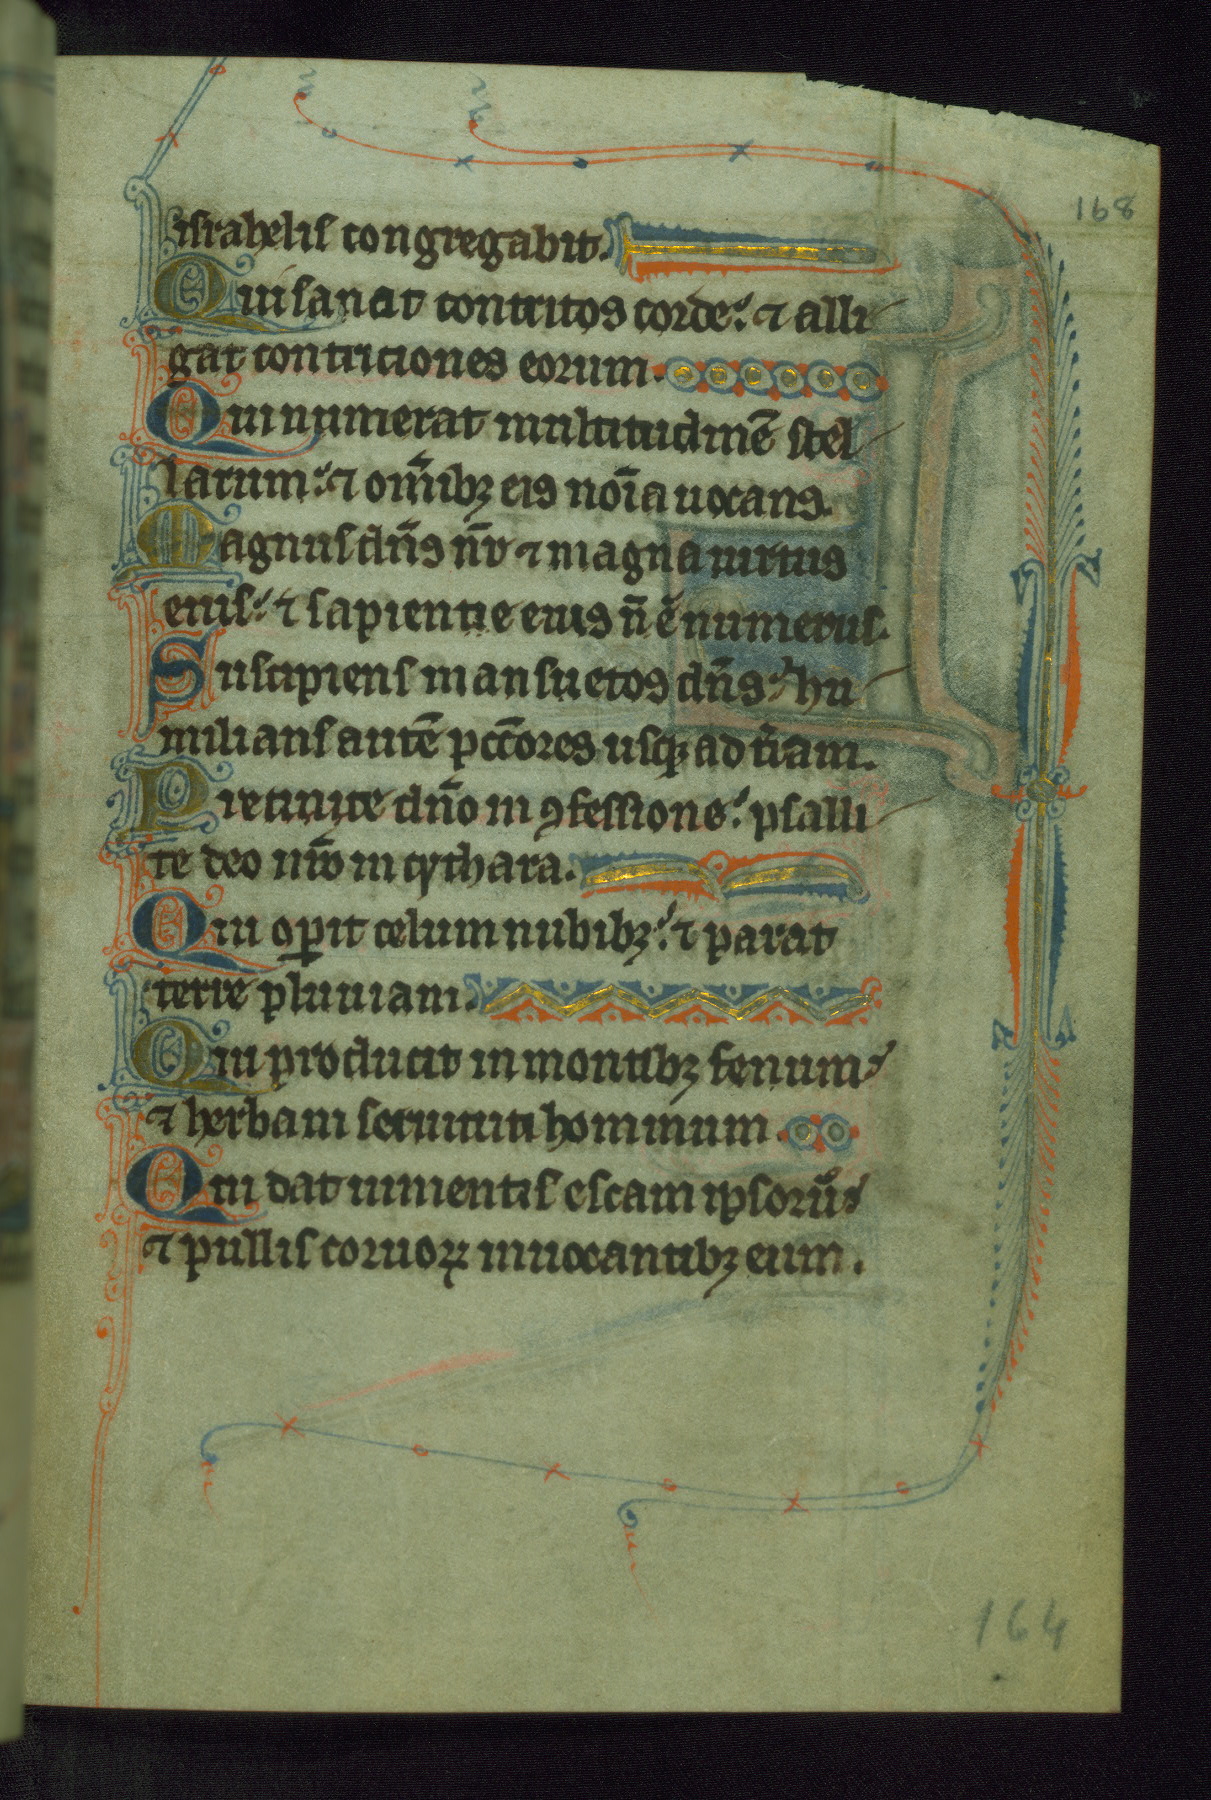 168
israhelis congregabit.
Qui sanat contritos corde: ⁊ alli
gat contriciones eorum.
Qui numerat multitudinē stel
larum: ⁊ om̄ibꝫ eis noīa uocans.
Magnus dn̄s nr̄ ⁊ magna uirtus
eius: ⁊ sapientie eius n̄ ē numerus.
Suscipiens mansuetos dn̄s: hu
milians autē pcc̄ores usqꝫ ad t̄ram.
Precinite dn̄o in ꝯfessione: psalli
te deo nr̄o in cythara.
Qui oꝑit celum nubibꝫ: ⁊ parat
terre pluuiam.
Qui producit in montibꝫ fenum:
⁊ herbam seruituti hominum.
Qui dat iumentis escam ipsorū:
⁊ pullis coruoꝝ inuocantibꝫ eum.
164